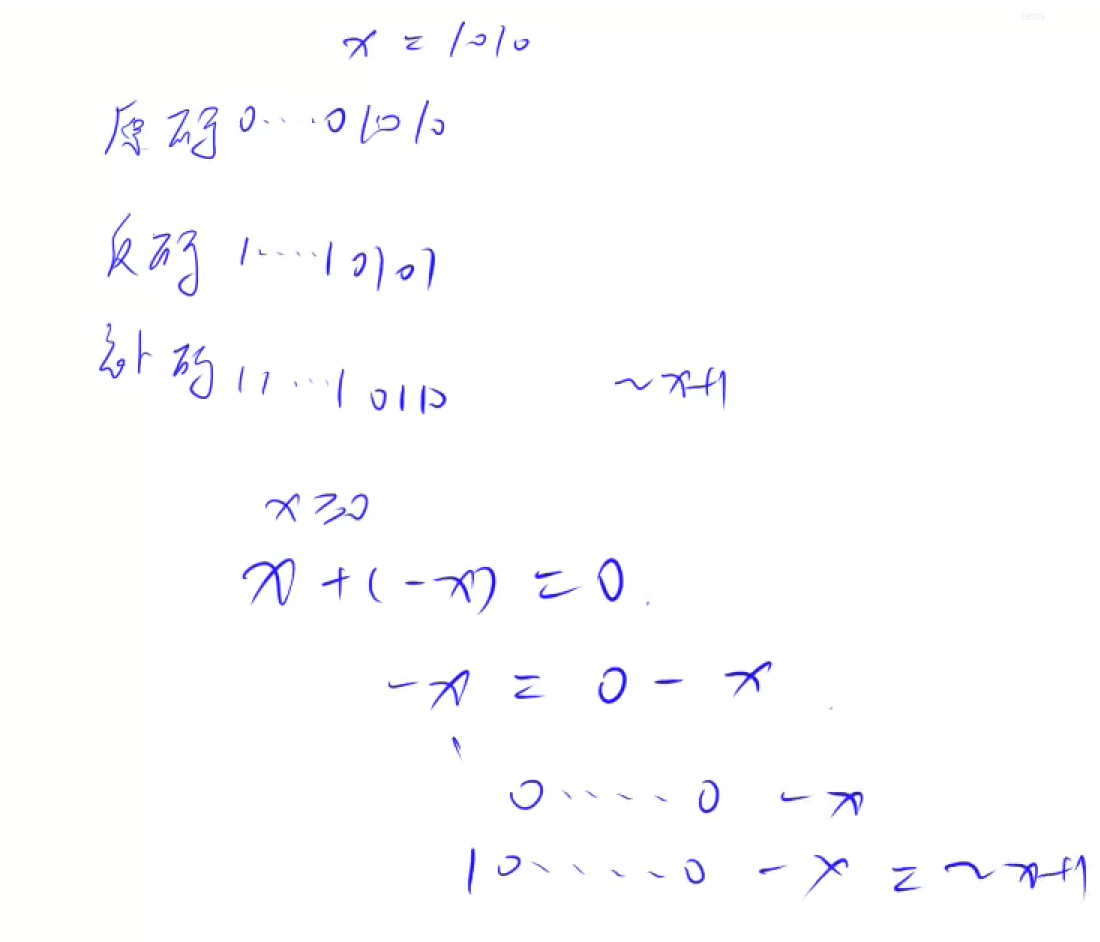 x = 1010
原码 0····01010
反码 1····10101
补码 11···10110
~x+1
x ≥ 0
x + (-x) = 0.
-x = 0 - x
0····0 - x
10····0 - x = ~x+1